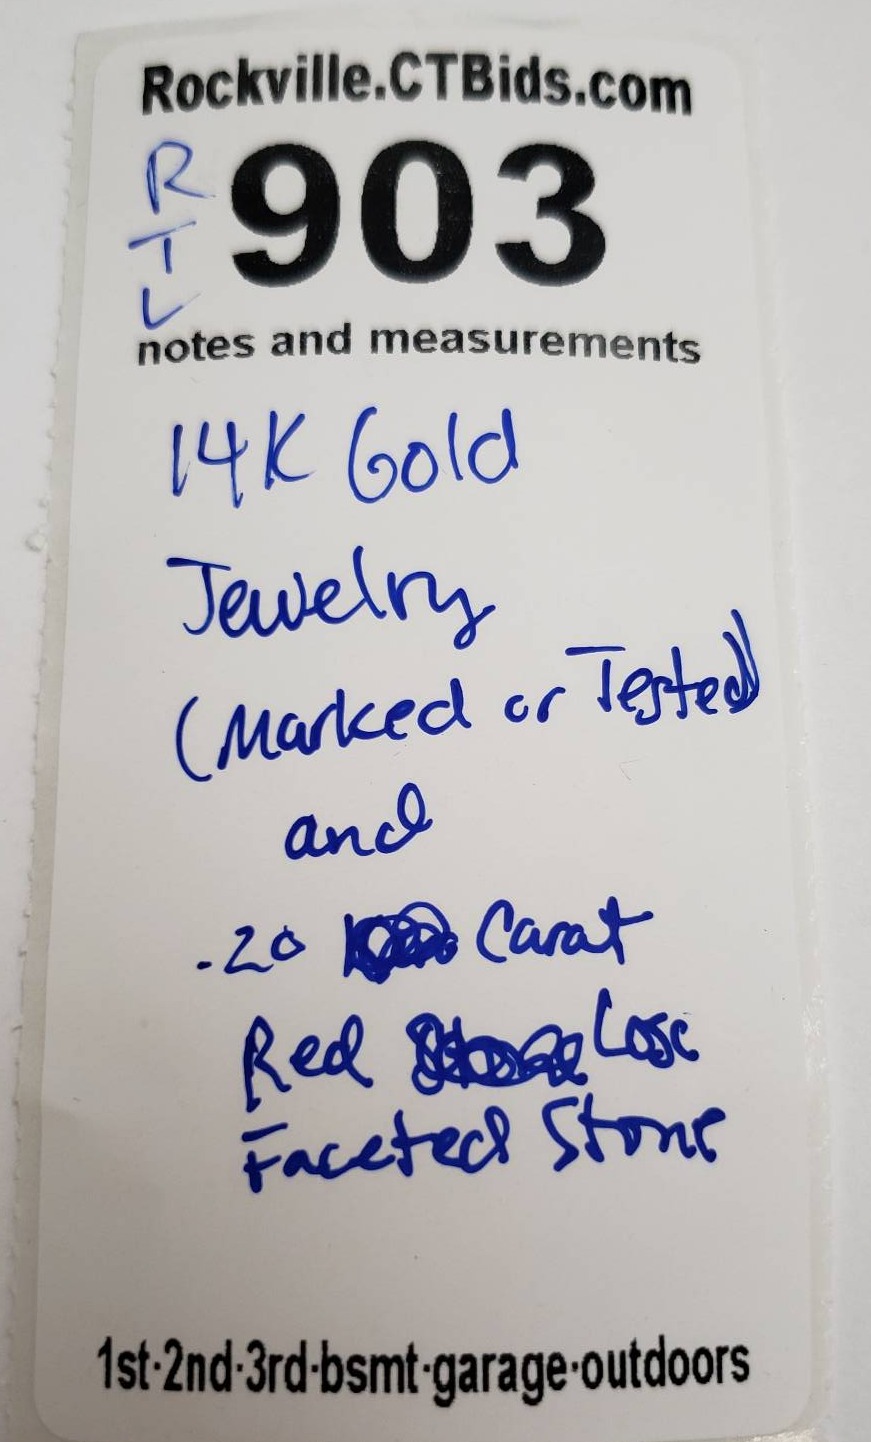 Rockville.CTBids.com
RTL
903
notes and measurements
14K Gold
Jewelry
(Marked or Tested)
and
.20 Carat
Red Lose
Faceted Stone
1st·2nd·3rd·bsmt·garage·outdoors